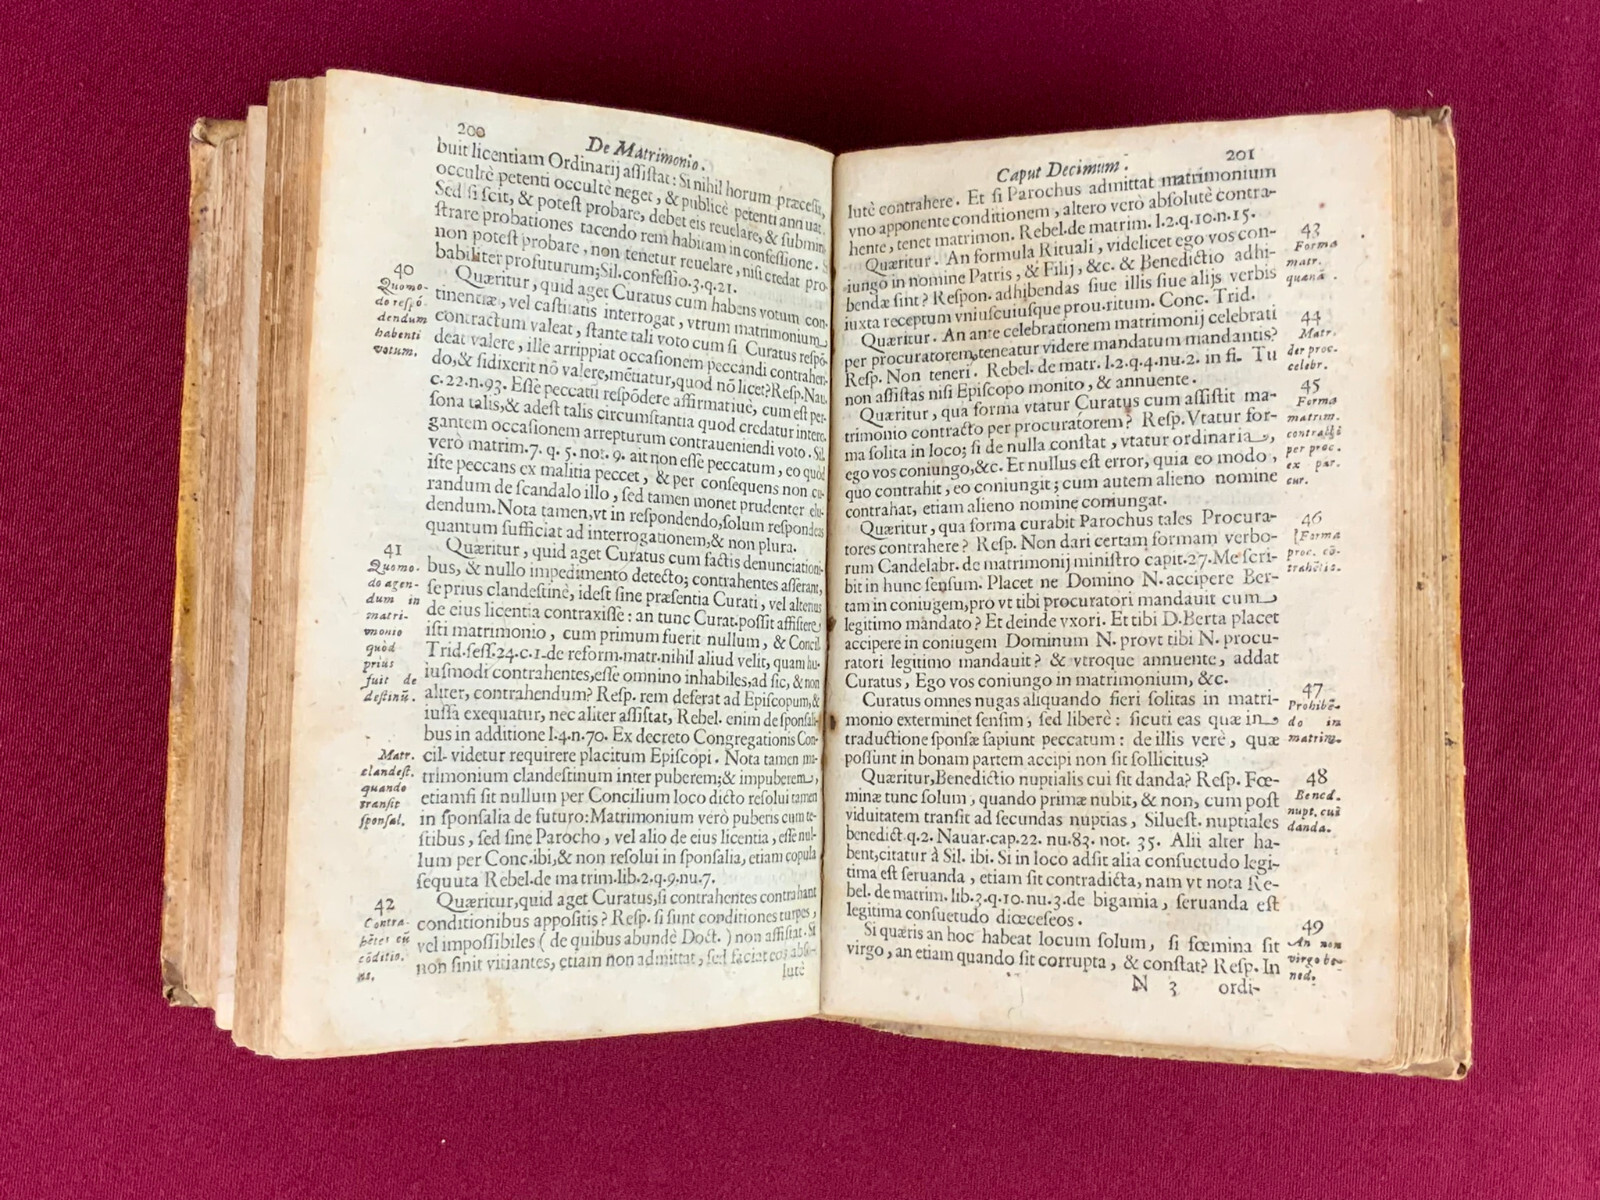 200
De Matrimonio.
buit licentiam Ordinarij assistat: Si nihil horum præcessit,
occultè petenti occultè neget, & publicè petenti annuat.
Sed si scit, & potest probare, debet eis reuelare, & submini
strare probationes tacendo rem habitam in confessione. Si
non potest probare, non tenetur reuelare, nisi credat pro
babiliter profuturum; Sil. confessio. 3. q. 21.
40
Quomo-
do respō
dendum
habenti
votum.
Quæritur, quid aget Curatus cum habens votum con-
tinentiæ, vel castitatis interrogat, vtrum matrimonium
contractum valeat, stante tali voto cum si Curatus respō-
deat valere, ille arripiat occasionem peccandi contrahen-
do, & si dixerit nō valere, mētiatur, quod nō licet? Resp. Nau.
c. 22. n. 93. Esse peccatū respōdere affirmatiuè, cum est per-
sona talis, & adest talis circumstantia quod credatur interro
gantem occasionem arrepturum contraueniendi voto. Sil.
verò matrim. 7. q. 5. not. 9. ait non esse peccatum, eo quòd
iste peccans ex malitia peccet, & per consequens non cu-
randum de scandalo illo, sed tamen monet prudenter elu-
dendum. Nota tamen, vt in respondendo, solum respondeas
quantum sufficiat ad interrogationem, & non plura.
41
Quomo-
do agen-
dum in
matri-
monio
quòd
prius
fuit de
destinū.
Quæritur, quid aget Curatus cum factis denunciationi-
bus, & nullo impedimento detecto; contrahentes asserant,
se prius clandestinè, idest sine præsentia Curati, vel alterius
de eius licentia contraxisse: an tunc Curat. possit assistere
isti matrimonio, cum primum fuerit nullum, & Concil.
Trid. sess. 24. c. 1. de reform. matr. nihil aliud velit, quam hu-
iusmodi contrahentes, esse omnino inhabiles, ad sic, & non
aliter, contrahendum? Resp. rem deferat ad Episcopum, &
iussa exequatur, nec aliter assistat, Rebel. enim de sponsali-
bus in additione l. 4. n. 70. Ex decreto Congregationis Con-
cil. videtur requirere placitum Episcopi. Nota tamen ma-
Matr.
clandest.
quando
transit
sponsal.
trimonium clandestinum inter puberem; & impuberem,
etiamsi sit nullum per Concilium loco dicto resolui tamen
in sponsalia de futuro: Matrimonium verò puberis cum te-
stibus, sed sine Parocho, vel alio de eius licentia, esse nul-
lum per Conc. ibi, & non resolui in sponsalia, etiam copula
sequuta Rebel. de matrim. lib. 2. q. 9. nu. 7.
42
Contra-
hētes cū
cōditio.
Quæritur, quid aget Curatus, si contrahentes contrahant
conditionibus appositis? Resp. si sunt conditiones turpes,
vel impossibiles (de quibus abundè Doct.) non assistat. Si
non sinit vitiantes, etiam non admittat, sed faciat eos abso-
lutè
Caput Decimum.
201
lutè contrahere. Et si Parochus admittat matrimonium
vno apponente conditionem, altero verò absolutè contra-
hente, tenet matrimon. Rebel. de matrim. l. 2. q. 10. n. 15.
43
Forma
matr.
quænā.
Quæritur. An formula Rituali, videlicet ego vos con-
iungo in nomine Patris, & Filij, &c. & Benedictio adhi-
bendæ sint? Respon. adhibendas siue illis siue alijs verbis
iuxta receptum vniuscuiusque prou. ritum. Conc. Trid.
44
Matr.
per proc.
celebr.
Quæritur. An ante celebrationem matrimonij celebrati
per procuratorem, teneatur videre mandatum mandantis?
Resp. Non teneri. Rebel. de matr. l. 2. q. 4. nu. 2. in fi. Tu
non assistas nisi Episcopo monito, & annuente.
45
Forma
matrim.
contrahē
per proc.
ex par.
cur.
Quæritur, qua forma vtatur Curatus cum assistit ma-
trimonio contracto per procuratorem? Resp. Vtatur for-
ma solita in loco; si de nulla constat, vtatur ordinaria,
ego vos coniungo, &c. Et nullus est error, quia eo modo,
quo contrahit, eo coniungit; cum autem alieno nomine
contrahat, etiam alieno nomine coniungat.
46
Forma
proc. cō-
trahētis.
Quæritur, qua forma curabit Parochus tales Procura-
tores contrahere? Resp. Non dari certam formam verbo-
rum Candelabr. de matrimonij ministro capit. 27. Me scri-
bit in hunc sensum. Placet ne Domino N. accipere Ber-
tam in coniugem, pro vt tibi procuratori mandauit cum
legitimo mandato? Et deinde vxori. Et tibi D. Berta placet
accipere in coniugem Dominum N. prout tibi N. procu-
ratori legitimo mandauit? & vtroque annuente, addat
Curatus, Ego vos coniungo in matrimonium, &c.
47
Prohibē-
do in
matrim.
Curatus omnes nugas aliquando fieri solitas in matri-
monio exterminet sensim, sed liberè: sicuti eas quæ in
traductione sponsæ sapiunt peccatum: de illis verè, quæ
possunt in bonam partem accipi non sit sollicitus?
48
Bened.
nupt. cui
danda.
Quæritur, Benedictio nuptialis cui sit danda? Resp. Fœ-
minæ tunc solum, quando primæ nubit, & non, cum post
viduitatem transit ad secundas nuptias, Siluest. nuptiales
benedict. q. 2. Nauar. cap. 22. nu. 83. not. 35. Alii alter ha-
bent, citatur à Sil. ibi. Si in loco adsit alia consuetudo legi-
tima est seruanda, etiam sit contradicta, nam vt nota Re-
bel. de matrim. lib. 3. q. 10. nu. 3. de bigamia, seruanda est
legitima consuetudo diœceseos.
49
An non
virgo be-
ned.
Si quæris an hoc habeat locum solum, si fœmina sit
virgo, an etiam quando sit corrupta, & constat? Resp. In
N 3
ordi-